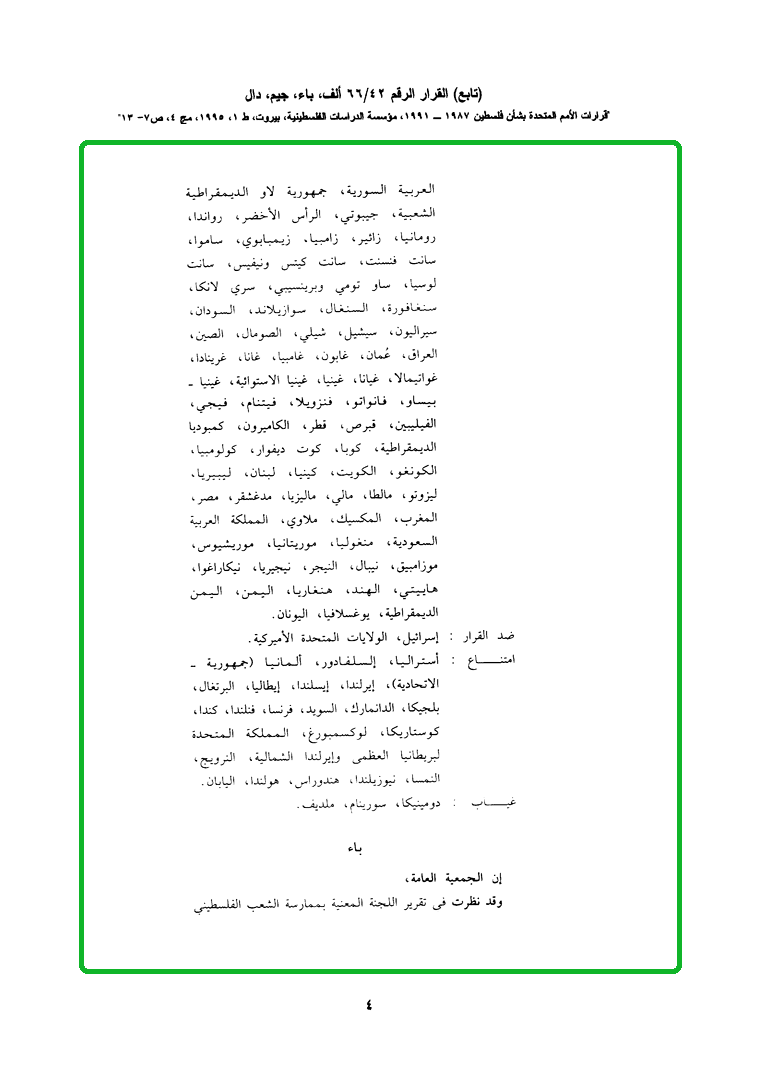 (تابع) القرار الرقم ٦٦/٤٢ ألف، باء، جيم، دال
"قرارات الأمم المتحدة بشأن فلسطين ١٩٨٧ ــ ١٩٩١، مؤسسة الدراسات الفلسطينية، بيروت، ط ١، ١٩٩٥، مج ٤، ص٧- ١٣"
العربية السورية، جمهورية لاو الديمقراطية
الشعبية، جيبوتي، الرأس الأخضر، رواندا،
رومانيا، زائير، زامبيا، زيمبابوي، ساموا،
سانت فنسنت، سانت كيتس ونيفيس، سانت
لوسيا، ساو تومي وبرينسيبي، سري لانكا،
سنغافورة، السنغال، سوازيلاند، السودان،
سيراليون، سيشيل، شيلي، الصومال، الصين،
العراق، عُمان، غابون، غامبيا، غانا، غرينادا،
غواتيمالا، غيانا، غينيا، غينيا الاستوائية، غينيا ـ
بيساو، فانواتو، فنزويلا، فيتنام، فيجي،
الفيليبين، قبرص، قطر، الكاميرون، كمبوديا
الديمقراطية، كوبا، كوت ديفوار، كولومبيا،
الكونغو، الكويت، كينيا، لبنان، ليبيريا،
ليزوتو، مالطا، مالي، ماليزيا، مدغشقر، مصر،
المغرب، المكسيك، ملاوي، المملكة العربية
السعودية، منغوليا، موريتانيا، موريشيوس،
موزامبيق، نيبال، النيجر، نيجيريا، نيكاراغوا،
هاييتي، الهند، هنغاريا، اليمن، اليمن
الديمقراطية، يوغسلافيا، اليونان.
ضد القرار : إسرائيل، الولايات المتحدة الأميركية.
امتنـــــاع : أستراليا، إلسلفادور، ألمانيا (جمهورية ـ
الاتحادية)، إيرلندا، إيسلندا، إيطاليا، البرتغال،
بلجيكا، الدانمارك، السويد، فرنسا، فنلندا، كندا،
كوستاريكا، لوكسمبورغ، المملكة المتحدة
لبريطانيا العظمى وإيرلندا الشمالية، النرويج،
النمسا، نيوزيلندا، هندوراس، هولندا، اليابان.
غيـــــاب : دومينيكا، سورينام، ملديف.
باء
إن الجمعية العامة،
وقد نظرت في تقرير اللجنة المعنية بممارسة الشعب الفلسطيني
٤